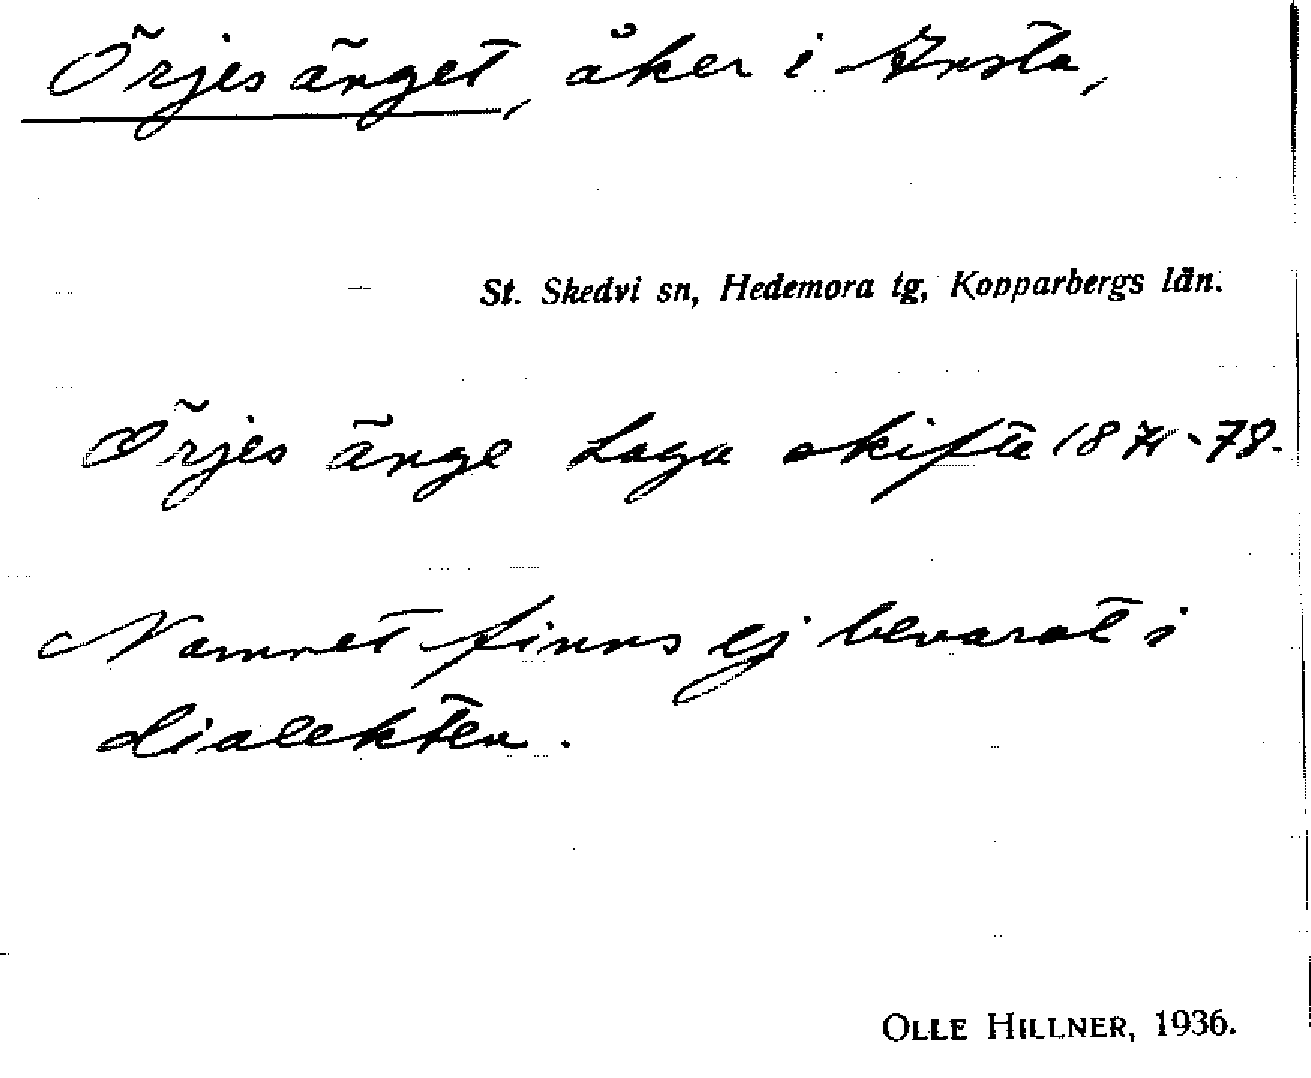 Örjes änget, åker i Knsta,
St. Skedvi sn, Hedemora tg, Kopparbergs län.
Örjes änge Laga skifte 1874-78.
Namnet finns ej bevarat i
dialekten.
OLLE HILLNER, 1936.